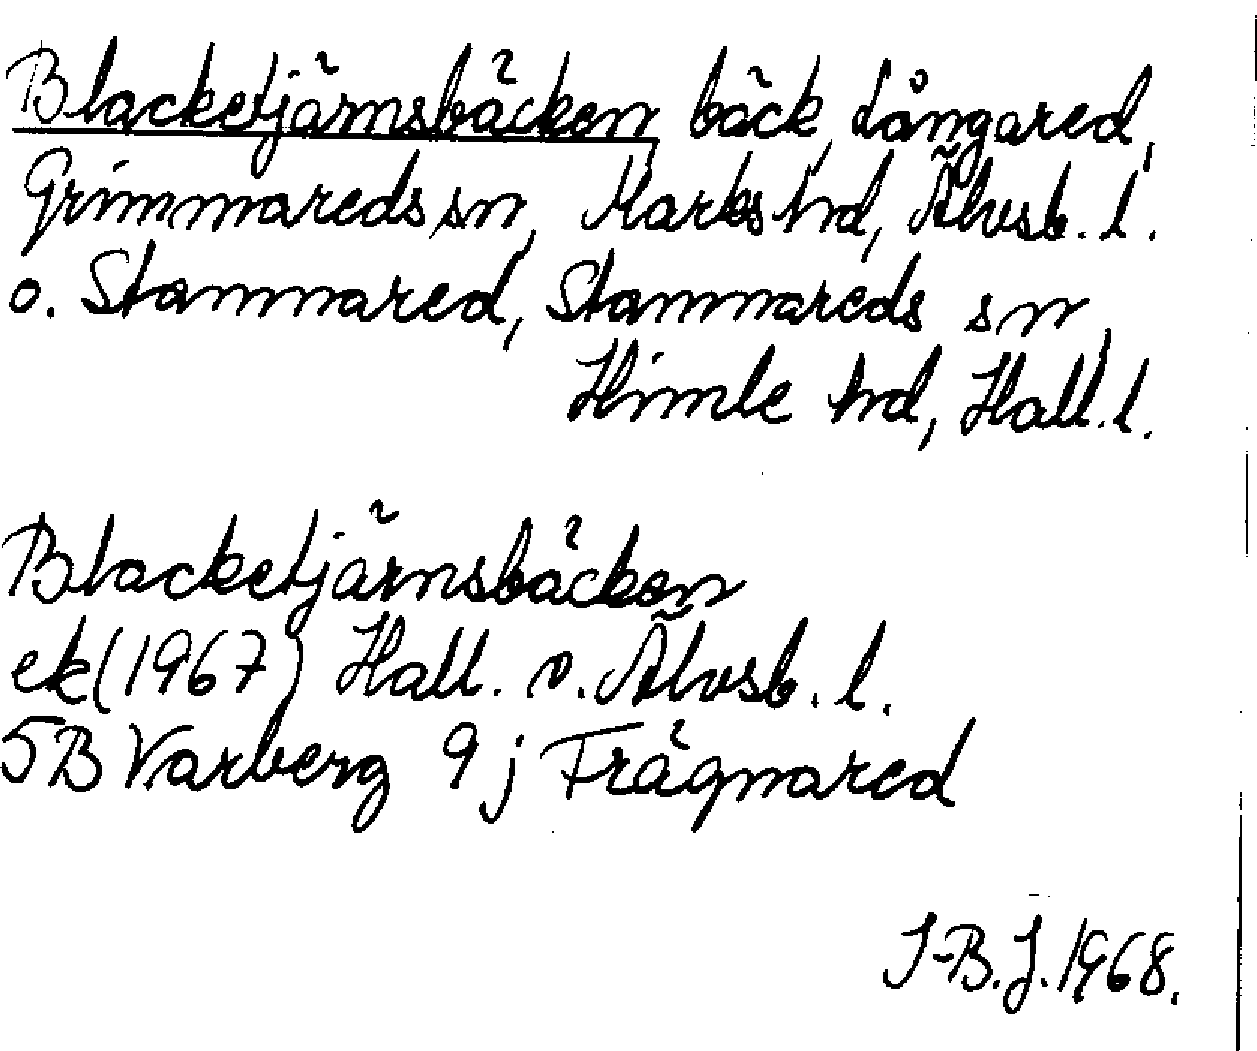 Blacketjärnsbäcken bäck, Långared,
Grimmareds sn, Marks hd, Älvsb. l.
o. Stamnared, Stamnareds sn,
Himle hd, Hall. l.
Blacketjärnsbäcken
ek (1967) Hall. o. Älvsb. l.
5B Varberg 9j Frägnared
I-B.J. 1968.